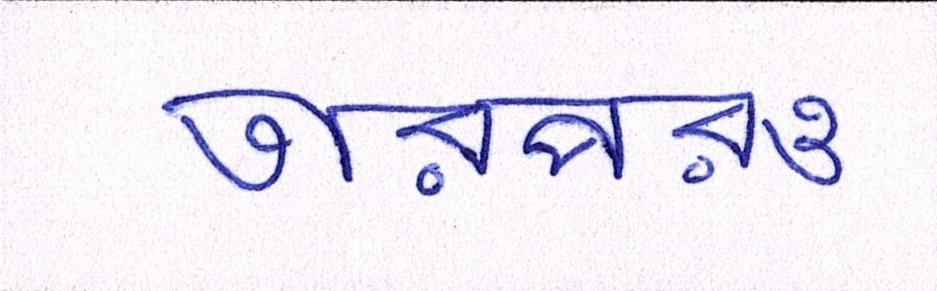 তারপরও